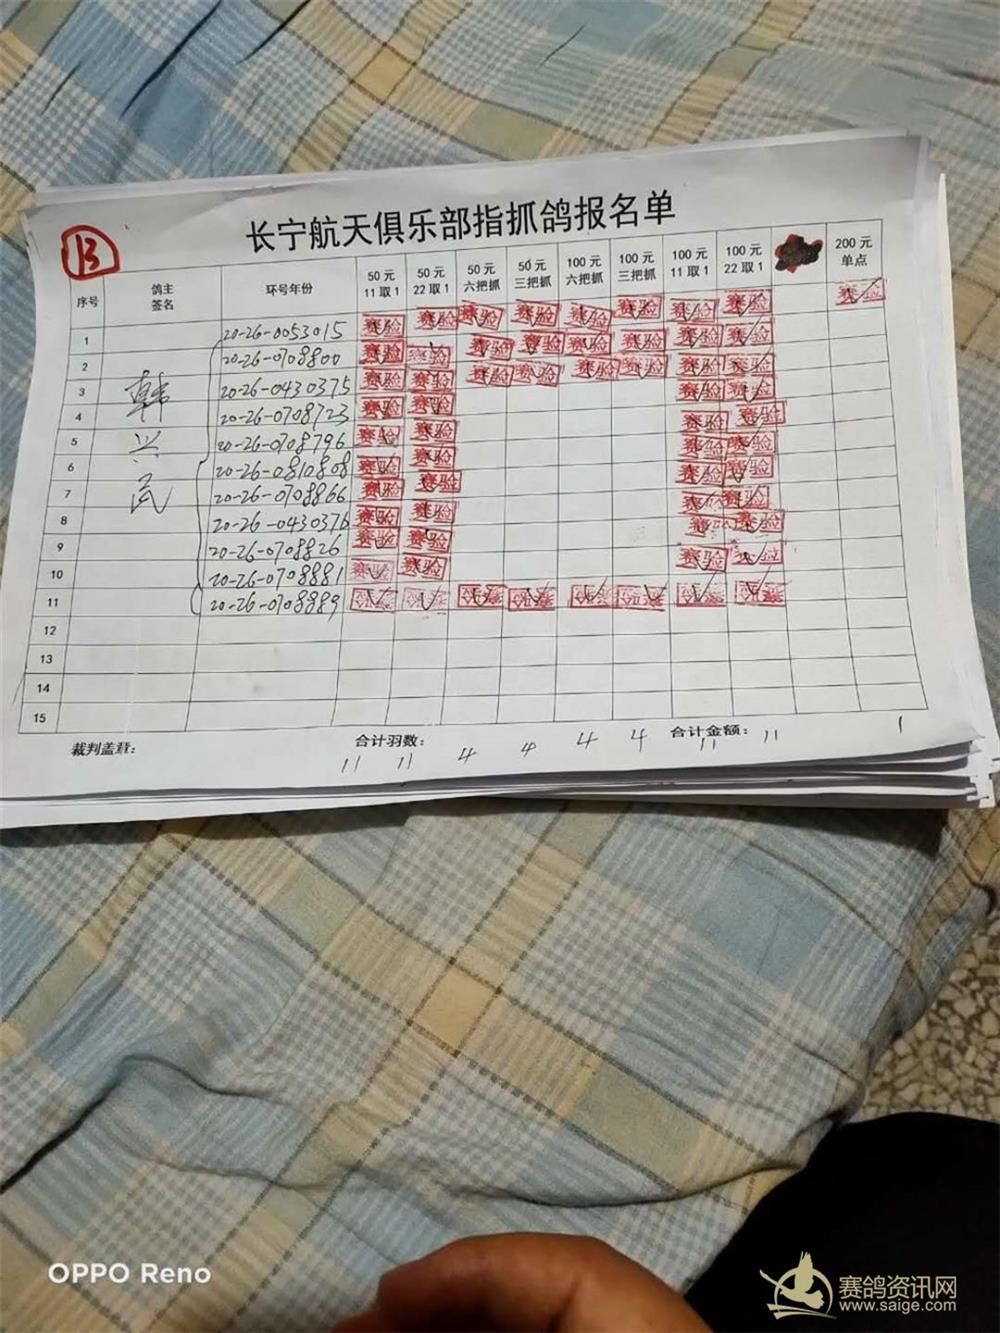 13
长宁航天俱乐部指抓鸽报名单
序号 鸽主签名 环号年份 50元11取1 50元22取1 50元六把抓 50元三把抓 100元六把抓 100元三把抓 100元11取1 100元22取1 200元单点
韩兴民
1 20-26-0053015 赛验 赛验 赛验 赛验 赛验 赛验 赛验 赛验 赛验
2 20-26-0708800 赛验 赛验 赛验 赛验 赛验 赛验 赛验 赛验
3 20-26-0430375 赛验 赛验 赛验 赛验 赛验 赛验 赛验 赛验
4 20-26-0708723 赛验 赛验 赛验 赛验
5 20-26-0708796 赛验 赛验 赛验 赛验
6 20-26-0810808 赛验 赛验 赛验 赛验
7 20-26-0708866 赛验 赛验 赛验 赛验
8 20-26-0430376 赛验 赛验 赛验 赛验
9 20-26-0708826 赛验 赛验 赛验 赛验
10 20-26-0708881 赛验 赛验 赛验 赛验
11 20-26-0708889 赛验 赛验 赛验 赛验 赛验 赛验 赛验 赛验
12
13
14
15
裁判盖章： 合计羽数： 合计金额：
11 11 4 4 4 4 11 11 1
OPPO Reno
赛鸽资讯网
www.saige.com